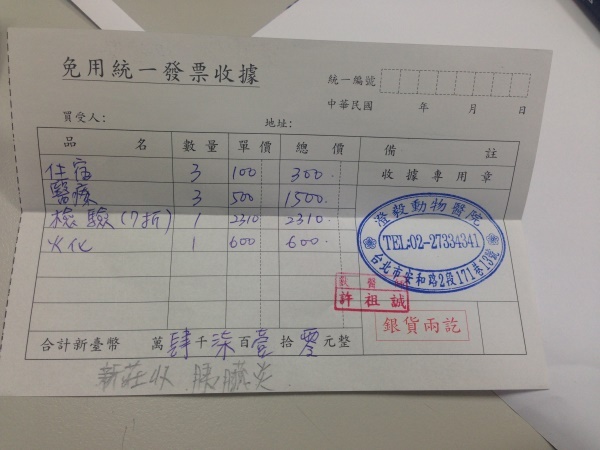 免用統一發票收據
統一編號
中華民國 年 月 日
買受人： 地址：
品名 數量 單價 總價 備註
住宿 3 100 300.
收據專用章
醫療 3 500 1500.
檢驗(7折) 1 2310 2310.
火化 1 600 600.
澄毅動物醫院
TEL:02-27334341
台北市安和路2段171巷13號
獸醫師
許祖誠
銀貨兩訖
合計新臺幣 萬肆千柒百壹拾零元整
新莊收 胰臟炎